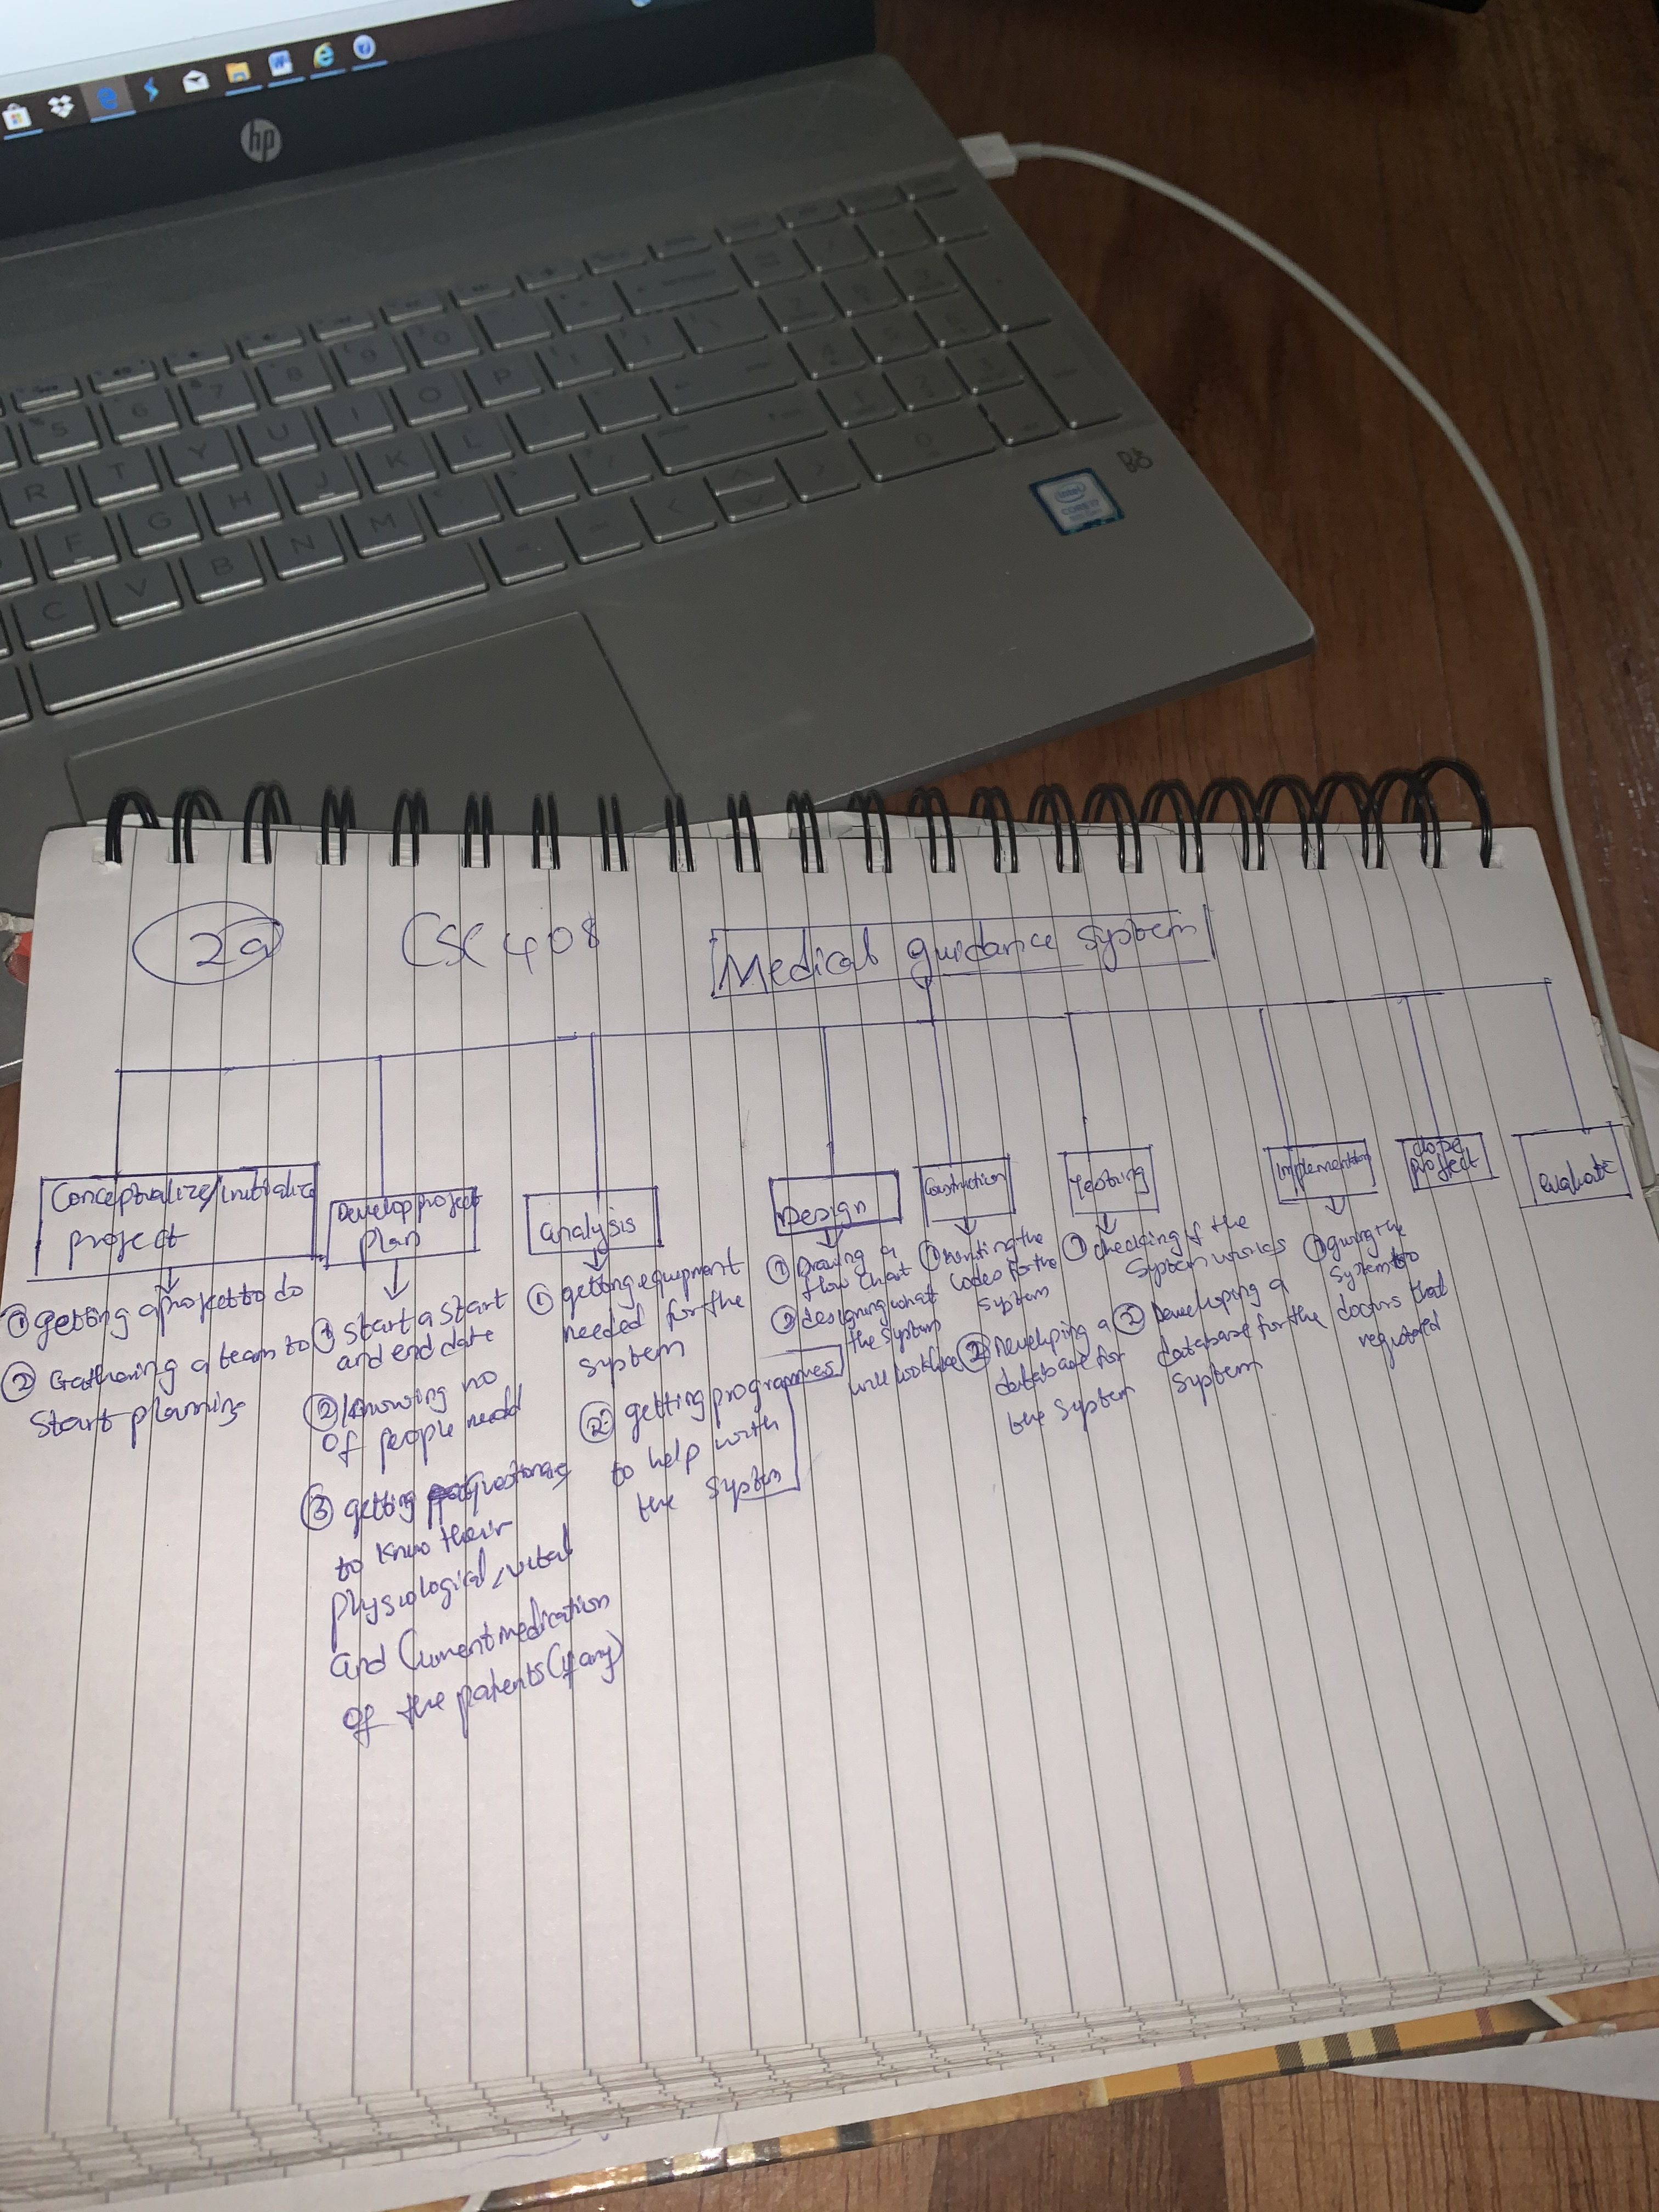 hp
5 6 7 8 9 0
R T Y U I O P
F G H J K L
C V B N M
intel
CORE i7
B&O
2a
CSC 408
Medical guidance system
Conceptualize/initialize
project
① getting a project to do
② Gathering a team to
start planning
Develop project
plan
① Start a start
and end date
② knowing no
of people need
③ getting
to know their
physiological, vital
and Current medication
of the patients (if any)
analysis
① getting equipment
needed for the
system
② getting programmes
to help with
the system
Design
① Drawing a
flow chart
② designing what
the system
will look like
Construction
① writing the
codes for the
system
② Developing a
database for
the system
Testing
① checking if the
System works
② Developing a
database for the
system
Implementation
① giving the
system to
doctors that
close
project
evaluate